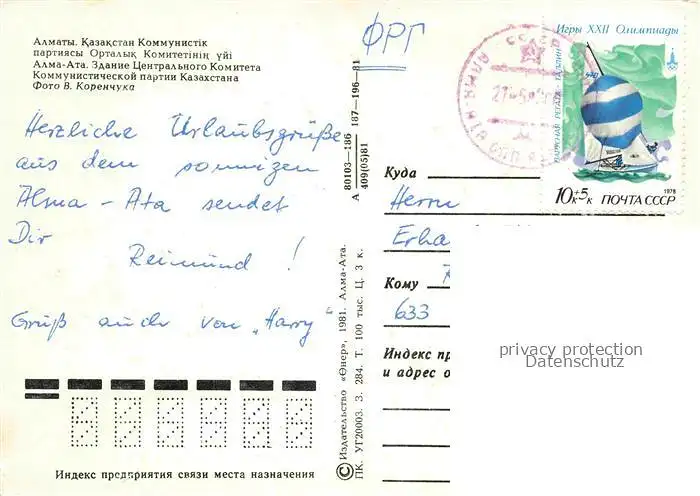 Алматы. Қазақстан Коммунистік
партиясы Орталық Комитетінің үйі
Алма-Ата. Здание Центрального Комитета
Коммунистической партии Казахстана
Фото В. Коренчука
ФРГ
Herzliche Urlaubsgrüße
aus dem sonnigen
Alma-Ata sendet
Dir
Reimund !
Gruß auch von „Harry"
80103—186 187—196—81
А 409(05)81
© Издательство «Өнер», 1981. Алма-Ата.
ПК. УГ20003. З. 284. Т. 100 тыс. Ц. 3 к.
Игры XXII Олимпиады
ПАРУСНАЯ РЕГАТА · ТАЛЛИН
470
1978
10к+5к ПОЧТА СССР
АЛМА-АТА
Куда
Herrn
Erha
Кому
633
Индекс пр
и адрес о
privacy protection
Datenschutz
Индекс предприятия связи места назначения